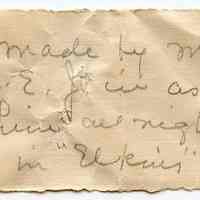 made by M
E. J. in as
all nigh
in "Elkins"